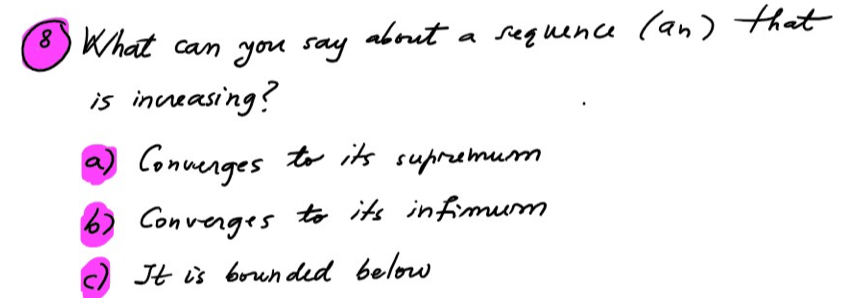 8) What can you say about a sequence (an) that
is increasing?
a) Converges to its supremum
b) Converges to its infimum
c) It is bounded below